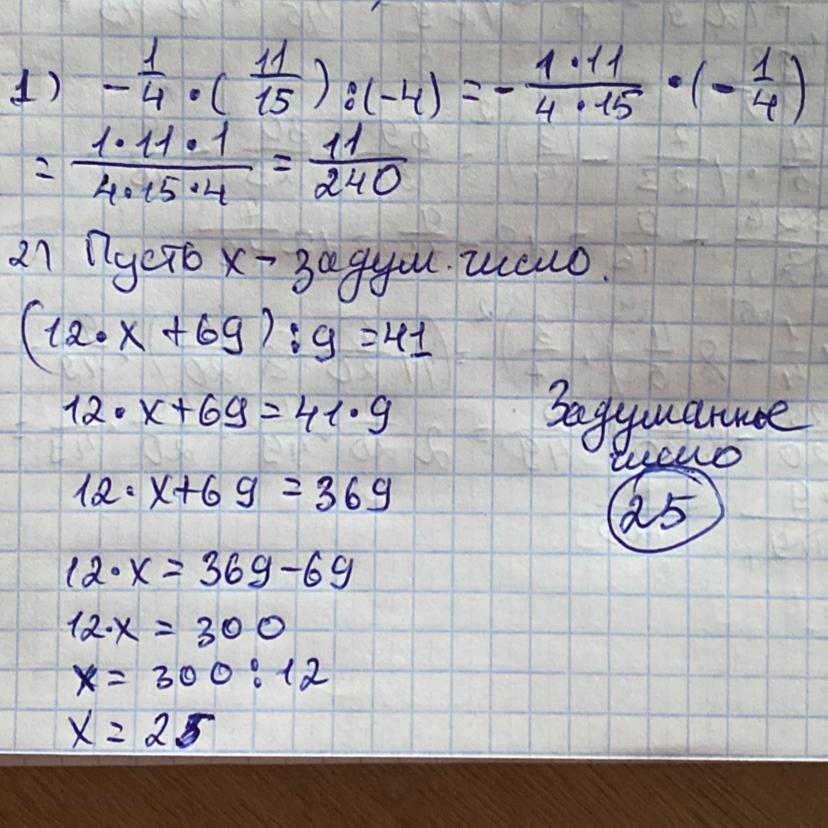 1) -1/4 · (11/15) : (-4) = - 1·11/4·15 · (-1/4)
= 1·11·1/4·15·4 = 11/240
2) Пусть х - задум. число.
(12·х + 69) : 9 = 41
12·х+69 = 41·9
12·х+69 = 369
12·х = 369-69
12·х = 300
х = 300 : 12
х = 25
Задуманное
число
25